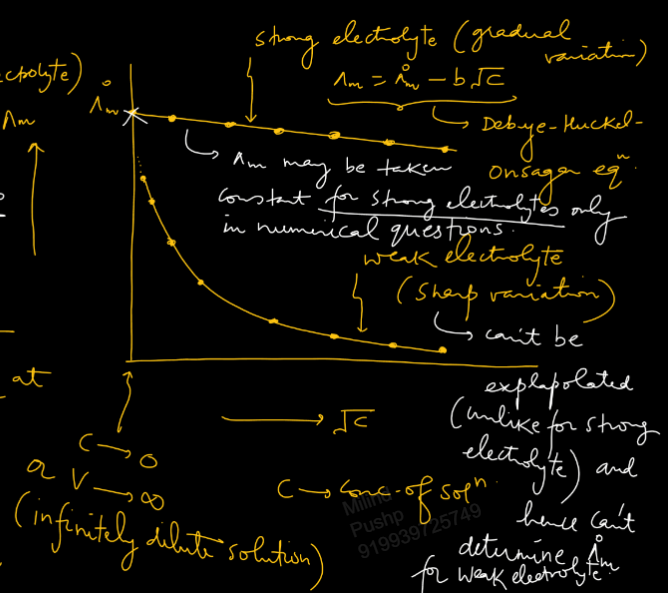 strong electrolyte (gradual
variation)
Λm = Λ̊m − b√C
→ Debye-Huckel-
Onsager eqⁿ.
ctrolyte)
Λm
Λ̊m
→ Λm may be taken
constant for strong electrolytes only
in numerical questions.
weak electrolyte
(sharp variation)
→ can't be
explapolated
(unlike for strong
electrolyte) and
hence can't
determine Λ̊m
for weak electrolyte.
at
→ √C
C → 0
or V → ∞
(infinitely dilute solution)
C → conc. of solⁿ.
Milind
Pushp
919939725749